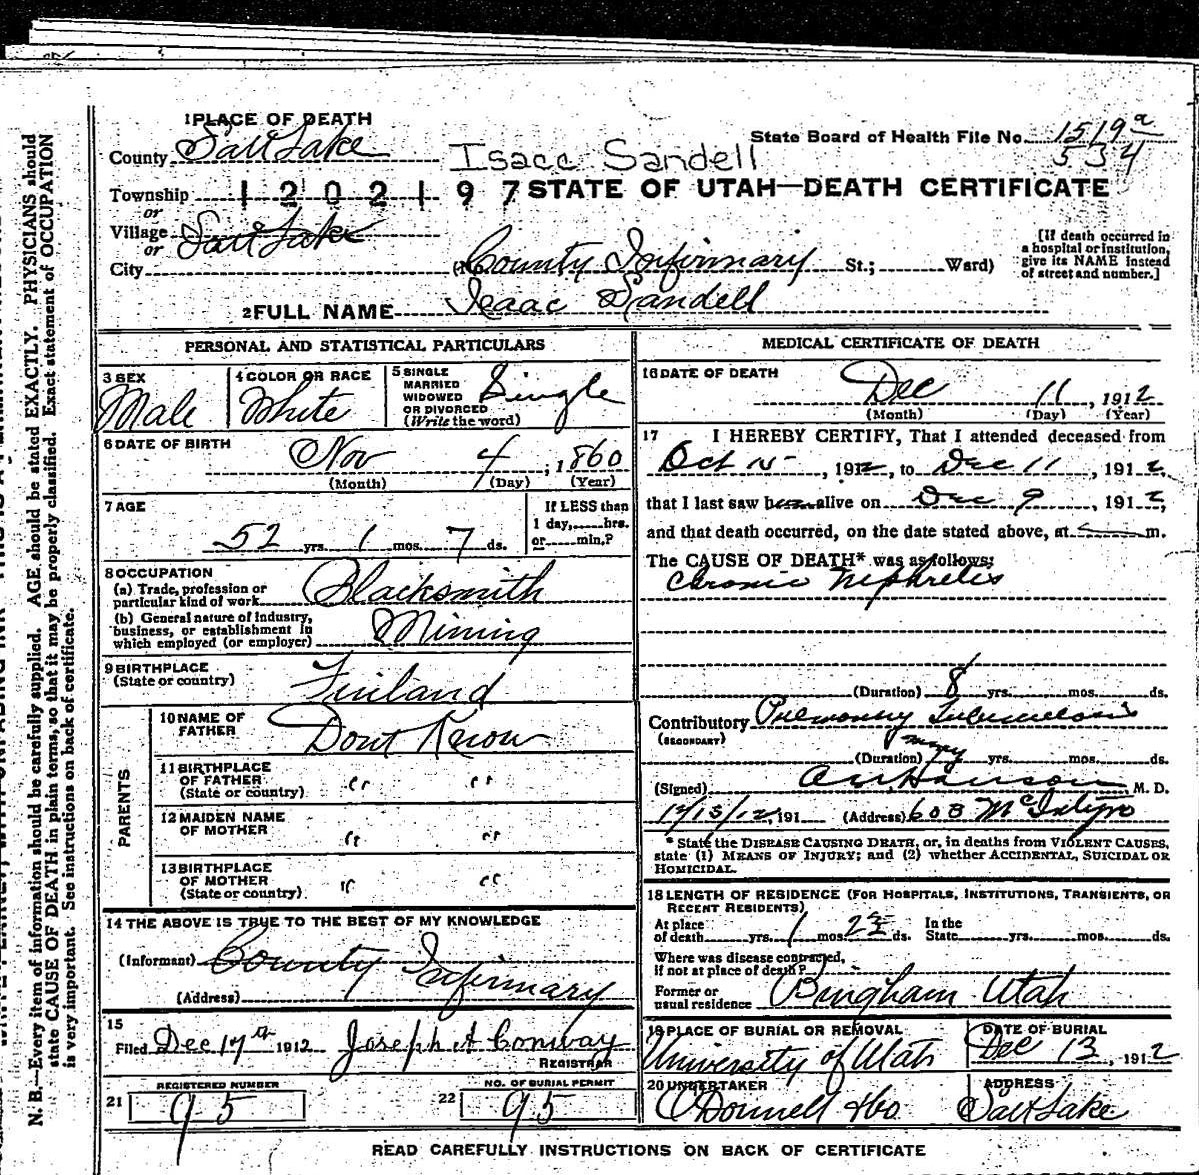 1 PLACE OF DEATH
County Salt Lake
State Board of Health File No. 1519 a
534
Isacc Sandell
Township 1202197 STATE OF UTAH—DEATH CERTIFICATE
or
Village Salt Lake
or
City
County Infirmary St.; Ward)
[If death occurred in
a hospital or institution,
give its NAME instead
of street and number.]
2 FULL NAME Isaac Sandell
PERSONAL AND STATISTICAL PARTICULARS
3 SEX
Male
4 COLOR OR RACE
White
5 SINGLE
MARRIED
WIDOWED
OR DIVORCED
(Write the word)
Single
6 DATE OF BIRTH
Nov 4, 1860
(Month) (Day) (Year)
7 AGE
52 yrs. 1 mos. 7 ds.
If LESS than
1 day, hrs.
or min.?
8 OCCUPATION
(a) Trade, profession or
particular kind of work Blacksmith
(b) General nature of industry,
business, or establishment in
which employed (or employer) Mining
9 BIRTHPLACE
(State or country) Finland
PARENTS
10 NAME OF
FATHER Dont Know
11 BIRTHPLACE
OF FATHER
(State or country) " "
12 MAIDEN NAME
OF MOTHER " "
13 BIRTHPLACE
OF MOTHER
(State or country) " "
14 THE ABOVE IS TRUE TO THE BEST OF MY KNOWLEDGE
(Informant) County Infirmary
(Address)
15
Filed Dec 17th 1912 Joseph A Conway
REGISTRAR
REGISTERED NUMBER
21 95
NO. OF BURIAL PERMIT
22 95
MEDICAL CERTIFICATE OF DEATH
16 DATE OF DEATH
Dec 11, 1912
(Month) (Day) (Year)
17 I HEREBY CERTIFY, That I attended deceased from
Oct 15, 1912, to Dec 11, 1912,
that I last saw alive on Dec 9, 1912,
and that death occurred, on the date stated above, at m.
The CAUSE OF DEATH* was as follows:
Chronic Nephretis
(Duration) 8 yrs. mos. ds.
Contributory Pulmonary Tuberculosis
(SECONDARY)
many
(Duration) yrs. mos. ds.
(Signed) Hanson M. D.
12/13/12, 191 (Address) 608 McIntyre
* State the DISEASE CAUSING DEATH, or, in deaths from VIOLENT CAUSES,
state (1) MEANS OF INJURY; and (2) whether ACCIDENTAL, SUICIDAL OR
HOMICIDAL.
18 LENGTH OF RESIDENCE (FOR HOSPITALS, INSTITUTIONS, TRANSIENTS, OR
RECENT RESIDENTS)
At place
of death yrs. 1 mos. ds.
In the
State yrs. mos. ds.
Where was disease contracted,
if not at place of death?
Former or
usual residence Bingham Utah
19 PLACE OF BURIAL OR REMOVAL
University of Utah
DATE OF BURIAL
Dec 13, 1912
20 UNDERTAKER
O'Donnell & Co
ADDRESS
Salt Lake
READ CAREFULLY INSTRUCTIONS ON BACK OF CERTIFICATE
N. B.—Every item of information should be carefully supplied. AGE should be stated EXACTLY. PHYSICIANS should
state CAUSE OF DEATH in plain terms, so that it may be properly classified. Exact statement of OCCUPATION
is very important. See instructions on back of certificate.